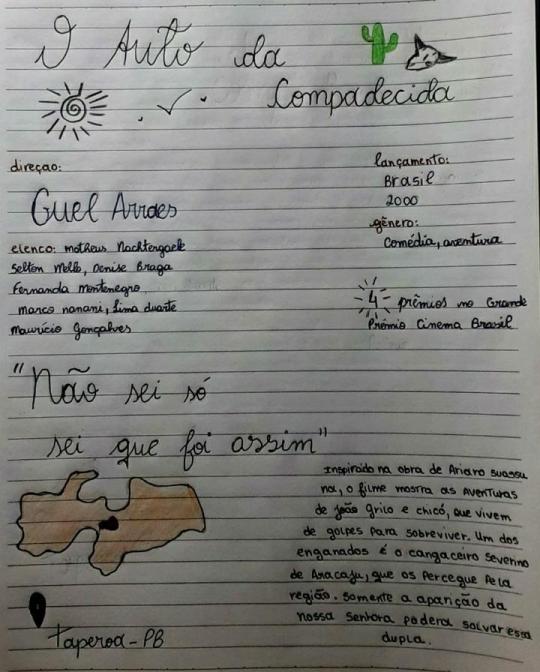 O Auto da
Compadecida
direçao:
Guel Arraes
elenco: matheus Nachtergaele
Selton Mello, Denise Braga
Fernanda Montenegro,
marco nanani, Lima duarte
Maurício Gonçalves
lançamento:
Brasil
2000
gênero:
Comédia, aventura
4 prêmios no Grande
Prêmio Cinema Brasil
"Não sei só
sei que foi assim"
Inspirado na obra de Ariaro suassu
na, o filme mostra as aventuras
de joão grilo e chicó, que vivem
de golpes para sobreviver. Um dos
enganados é o cangaceiro Severino
de Aracaju, que os percegue pela
região. somente a aparição da
nossa senhora poderá salvar essa
dupla.
Taperoa-PB